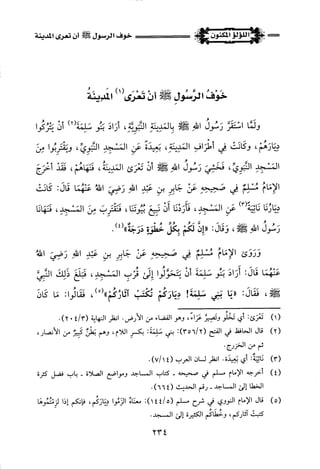 اللؤلؤ المكنون خوف الرسول ﷺ أن تعرى المدينة
خَوْفُ الرَّسُولِ ﷺ أَنْ تَعْرَى(١) المَدِينَةُ
ولَمَّا اسْتَقَرَّ رَسُولُ اللهِ ﷺ بِالمَدِينَةِ النَّبَوِيَّةِ، أَرَادَ بَنُو سَلِمَةَ(٢) أَنْ يَتْرُكُوا
دِيَارَهُمْ، وكَانَتْ فِي أَطْرَافِ المَدِينَةِ، بَعِيدَةً عَنِ المَسْجِدِ النَّبَوِيِّ، ويَقْتَرِبُوا مِنَ
المَسْجِدِ النَّبَوِيِّ، فَخَشِيَ رَسُولُ اللهِ ﷺ أَنْ تَعْرَى المَدِينَةُ، فَنَهَاهُمْ، فَقَدْ أَخْرَجَ
الإِمَامُ مُسْلِمٌ فِي صَحِيحِهِ عَنْ جَابِرِ بنِ عَبْدِ اللهِ رَضِيَ اللهُ عَنْهُمَا قَالَ: كَانَتْ
دِيَارُنَا نَائِيَةً(٣) عَنِ المَسْجِدِ، فَأَرَدْنَا أَنْ نَبِيعَ بُيُوتَنَا، فَنَقْتَرِبَ مِنَ المَسْجِدِ، فَنَهَانَا
رَسُولُ اللهِ ﷺ، وَقَالَ: «إِنَّ لَكُمْ بِكُلِّ خُطْوَةٍ دَرَجَةً»(٤).
وَرَوَى الإِمَامُ مُسْلِمٌ فِي صَحِيحِهِ عَنْ جَابِرِ بنِ عَبْدِ اللهِ رَضِيَ اللهُ
عَنْهُمَا قَالَ: أَرَادَ بَنُو سَلِمَةَ أَنْ يَتَحَوَّلُوا إِلَى قُرْبِ المَسْجِدِ، فَبَلَغَ ذَلِكَ النَّبِيَّ
ﷺ، فَقَالَ: «يَا بَنِي سَلِمَةَ! دِيَارَكُمْ تُكْتَبْ آثَارُكُمْ»(٥)، فَقَالُوا: مَا كَانَ
(١) تَعْرَى: أي تَخْلُو وتَصِيرُ عَرَاءً، وهو الفضاء من الأرض. انظر النهاية (٢٠٤/٣).
(٢) قال الحافظ في الفتح (٣٥٦/٢): بني سَلِمَةَ: بكسر اللام، وهم بَطْنٌ كبير من الأنصار،
ثم من الخزرج.
(٣) نَائِيَةٌ: أي بَعِيدَة. انظر لسان العرب (٧/١٤).
(٤) أخرجه الإمام مسلم في صحيحه - كتاب المساجد ومواضع الصلاة - باب فضل كثرة
الخطا إلى المساجد - رقم الحديث (٦٦٤).
(٥) قال الإمام النووي في شرح مسلم (١٤٤/٥): معناهُ الزَمُوا دِيَارَكُم، فإنكم إذا لَزِمْتُمُوهَا
كتبتْ آثاركم، وخُطَاكُم الكثيرة إلى المسجد.
٢٣٤